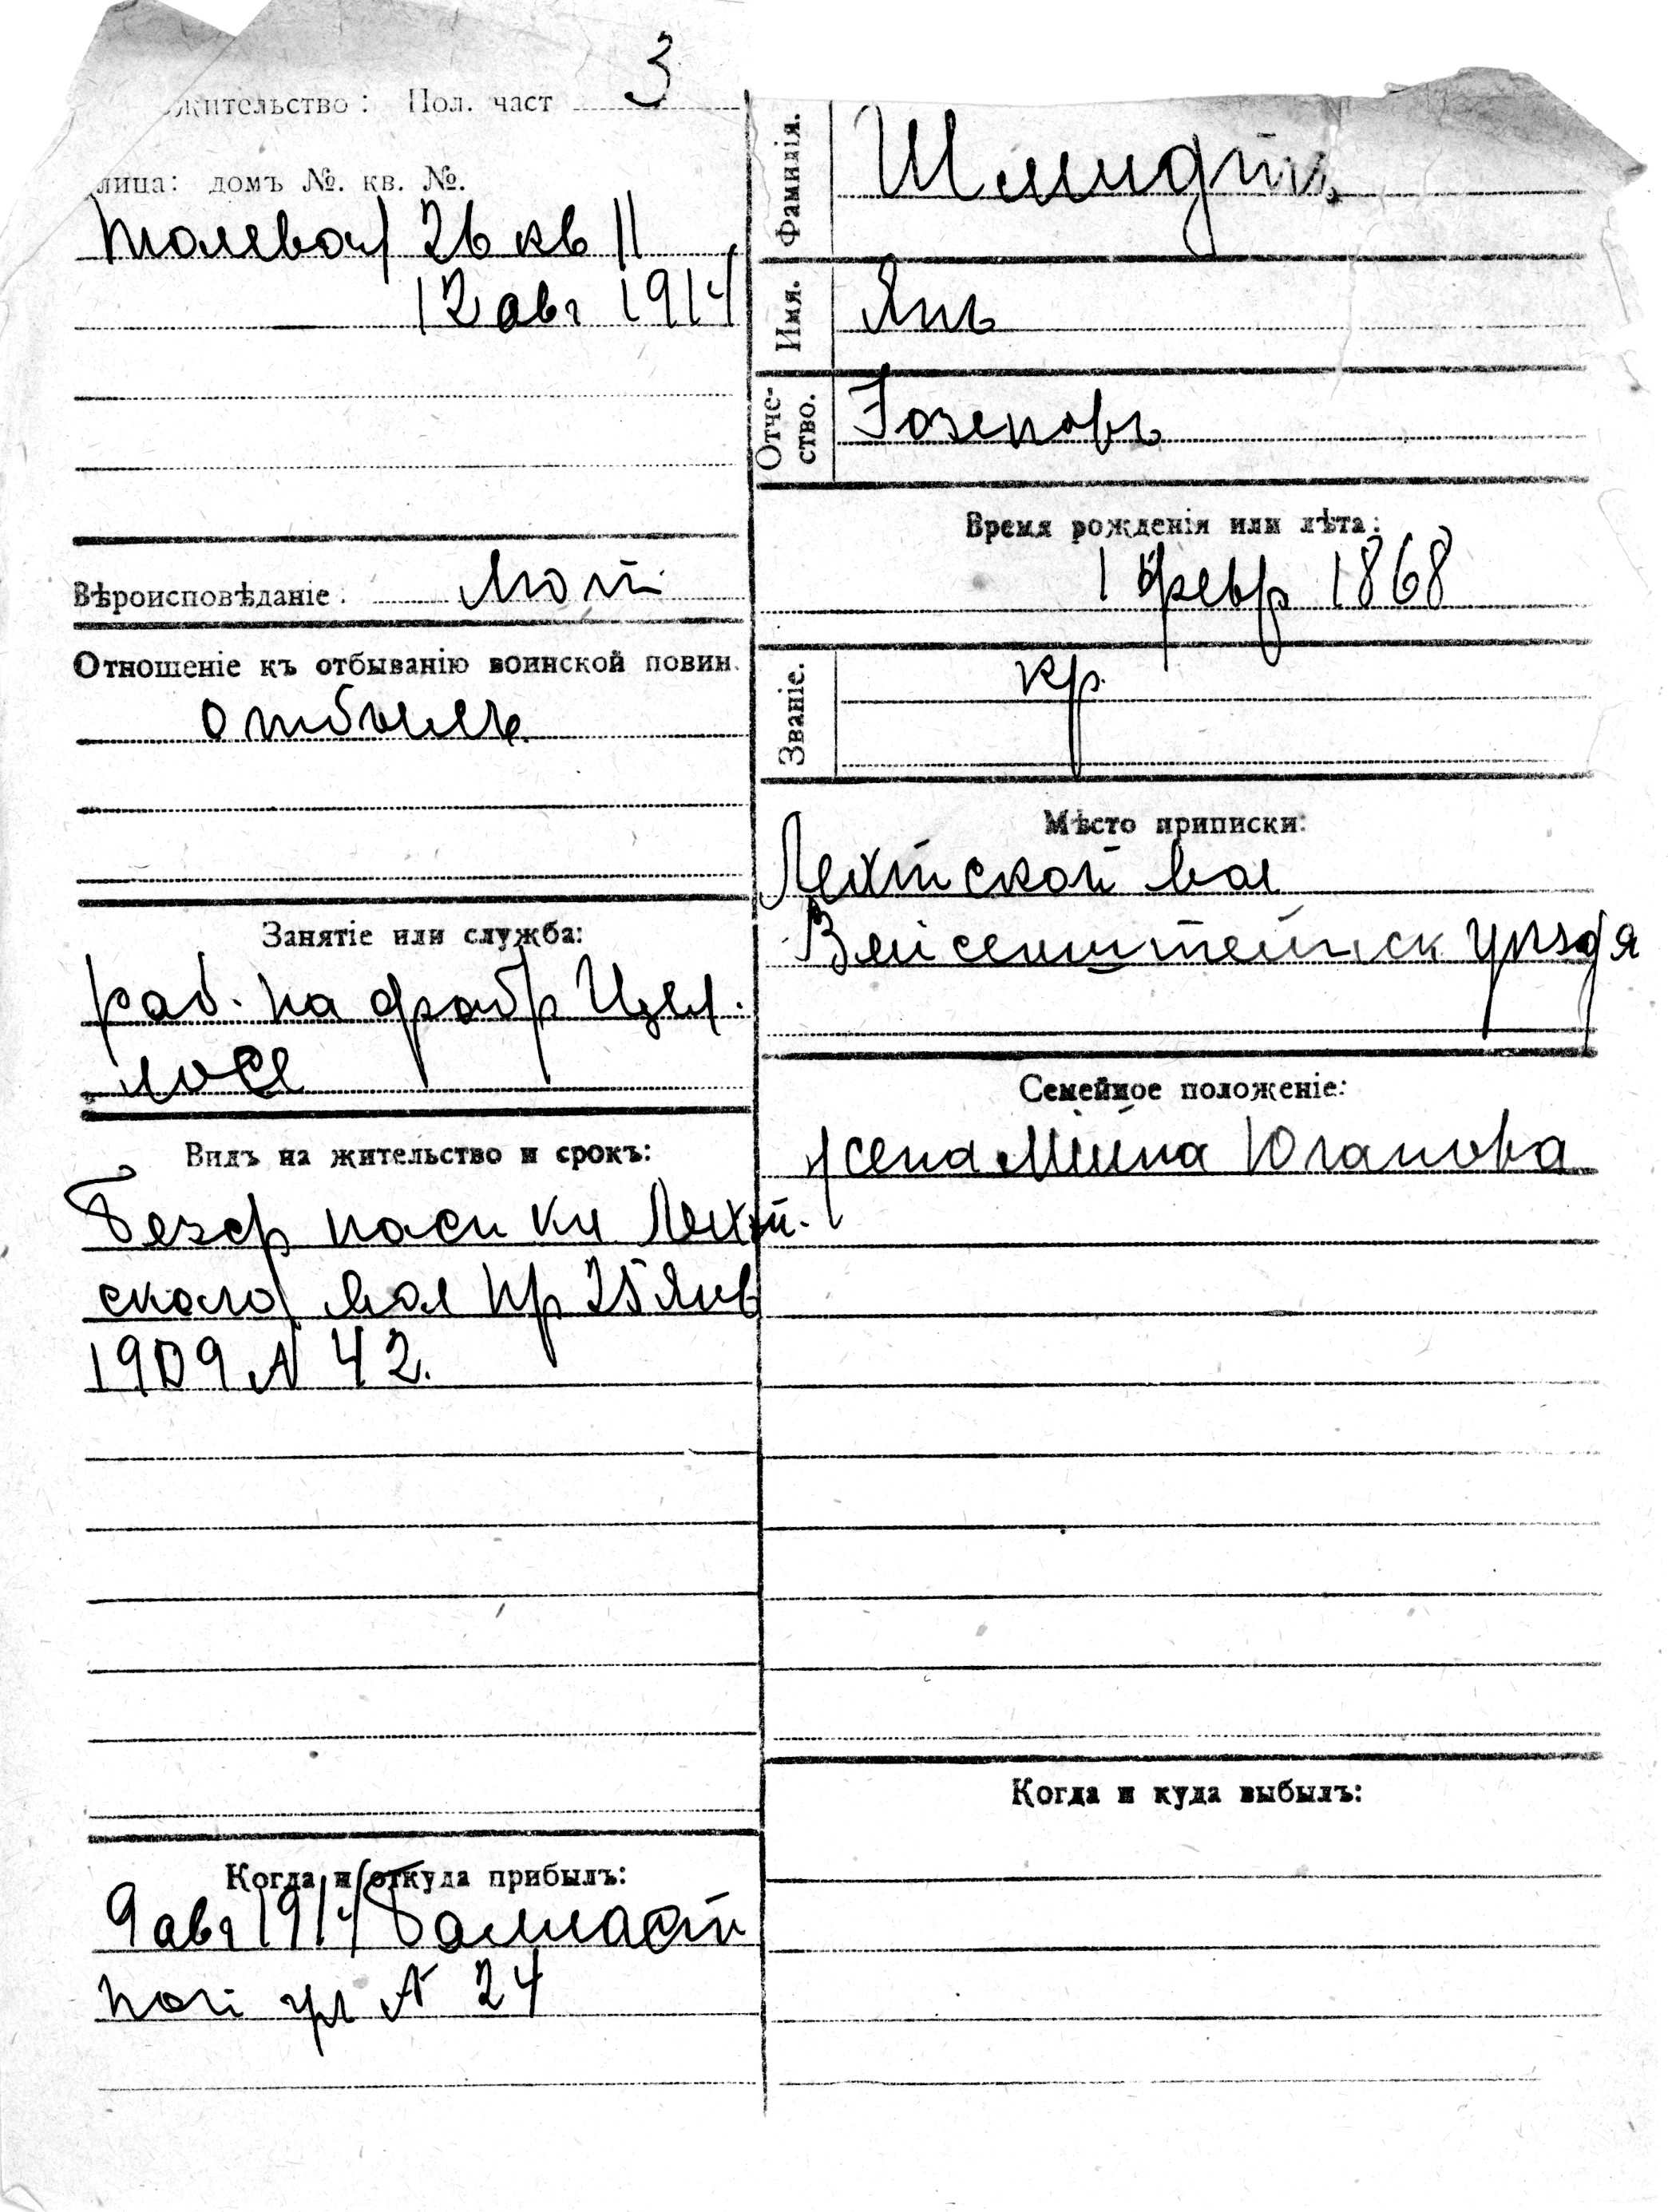 жительство: Пол. част 3
лица: домъ №. кв. №.
26 кв 11
12 авг 1914
Вѣроисповѣданіе. Лют
Отношеніе къ отбыванію воинской повин.
отбылъ
Занятіе или служба:
раб. на фабр Цел.
люл
Видъ на жительство и срокъ:
безср пасп кн Лехт.
скаго вол пр 25 Янв
1909 N 42.
Когда и откуда прибылъ:
9 авг 1914
ул N 24
Фамилія. Шмидтъ
Имя. Янъ
Отче-
ство. Іозеповъ
Время рожденія или лѣта:
1 февр 1868
Званіе. кр.
Мѣсто приписки:
Лехтской вол
Вейсенштейнск уѣзда
Семейное положеніе:
жена Мина Юганова
Когда и куда выбылъ: